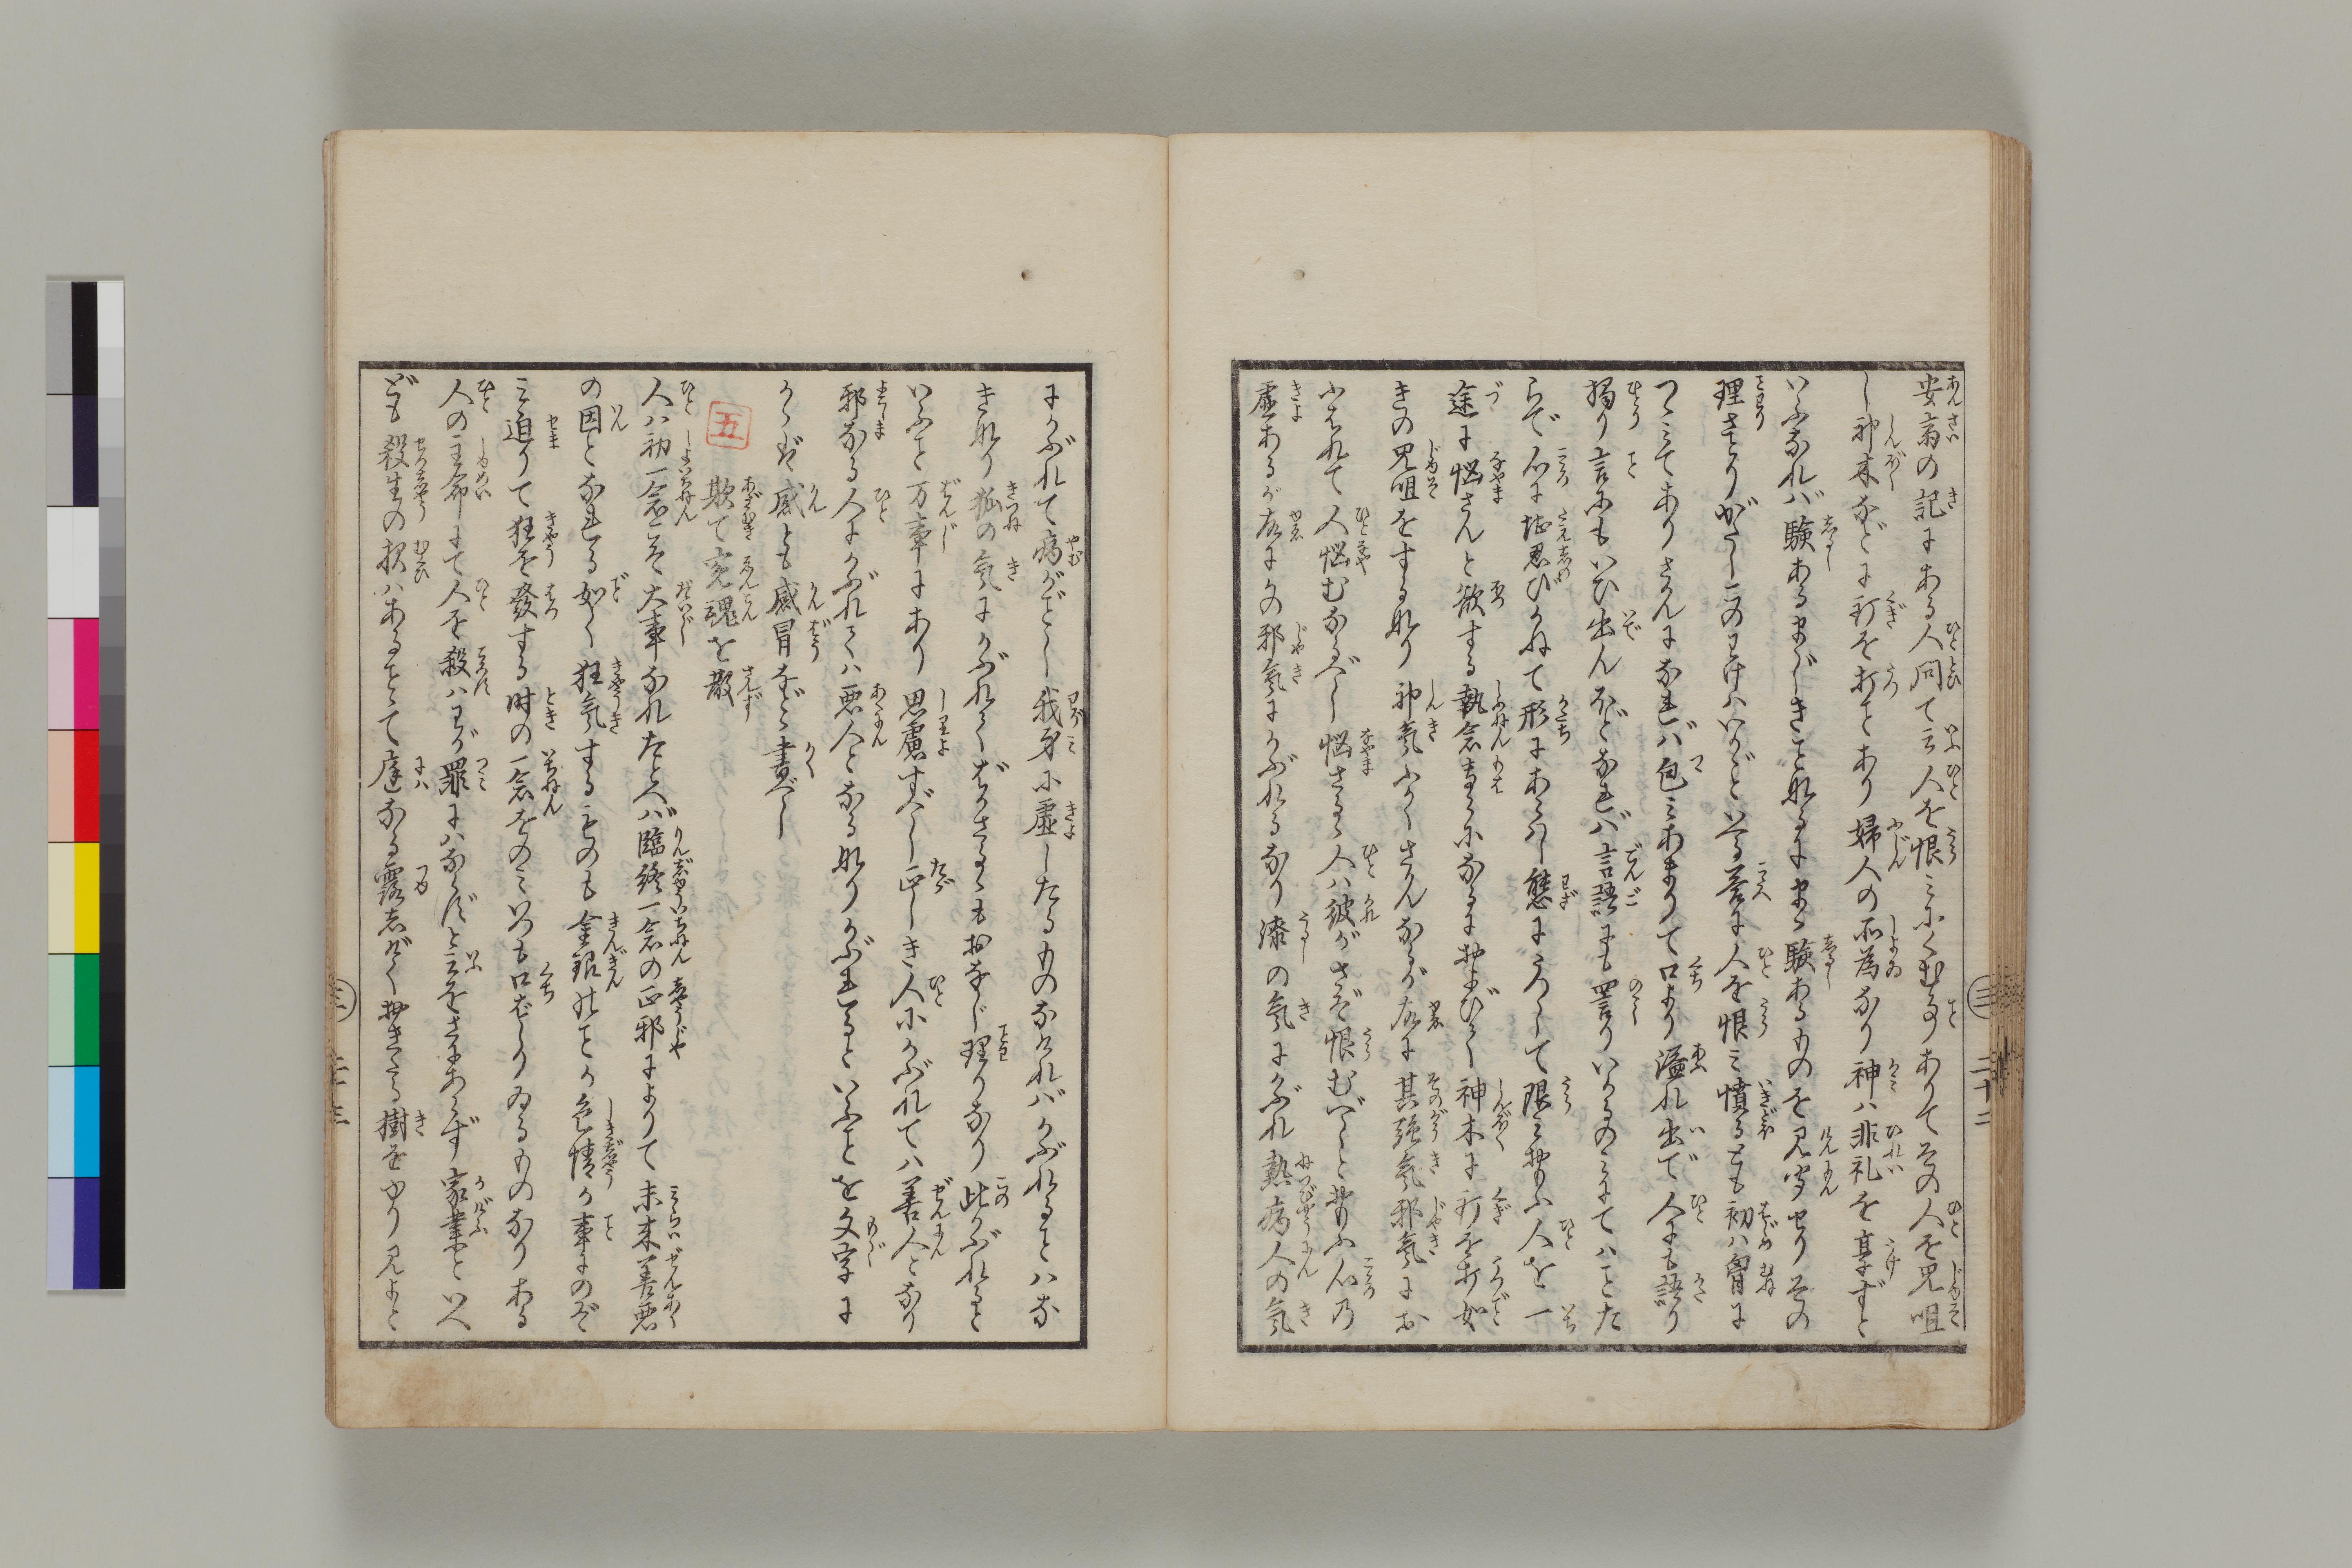 安斎の記にある人問て云人を恨みにくむ事ありてその人を咒咀
し神木などに釘を打ことあり婦人の所為なり神ハ非礼を享ずと
いふなれバ験あるまじきこと也るにまゝ験あるものを見聞せりその
理さとりがたしこのわけハいかゞといへる答に人を恨ミ憤るも初ハ胸に
つゝミてありさんになれバ包ミあまりて口より溢れ出で人にも語り
独り言にもいひ出んほどなれバ言語にも罵りいかるのミにてハことた
らで心に堪忍びかねて形にあらハし態にうつして限ミ 人を一
途に悩さんと欲する執念 になるに およびてハ神木に釘を打如
きの咒咀をする也り神気ふかくさかんなるが故に其強気邪気にお
かされて人悩むなるべし悩さるゝ人ハ彼がさぞ恨むべしと思ふ心乃
虚あるが故にかの邪気にかぶれるなり漆の気にかぶれ熱病人の気
にかぶれて病がごとし我身に虚したるものなけれバかぶれることハな
き也り狐の気にかぶれてばかさるゝもおなじ理りなり此かぶれると
いふこと万事にあり思慮すべし正しき人にかぶれてハ善人となり
邪なる人にかぶれてハ悪人となる也りかぶれるといふことを文字に
かゝば感とも感冒など書べし
五 欺て冤魂を散
人ハ初一念こそ大事なれたとへバ臨終一念の正邪によりて未来善悪
の因となれる如く狂気するものも金銀のことか色情か事にのぞ
ミ迫りて狂を発する時の一念をのミいつも口ばしりゐるものなりある
人の主命にて人を殺ハわが罪にハならずと云をさにあらず家業といへ
ども殺生の報ハあることゝて庭なる露しげくおきたる樹をゆり見よと
三 二十二